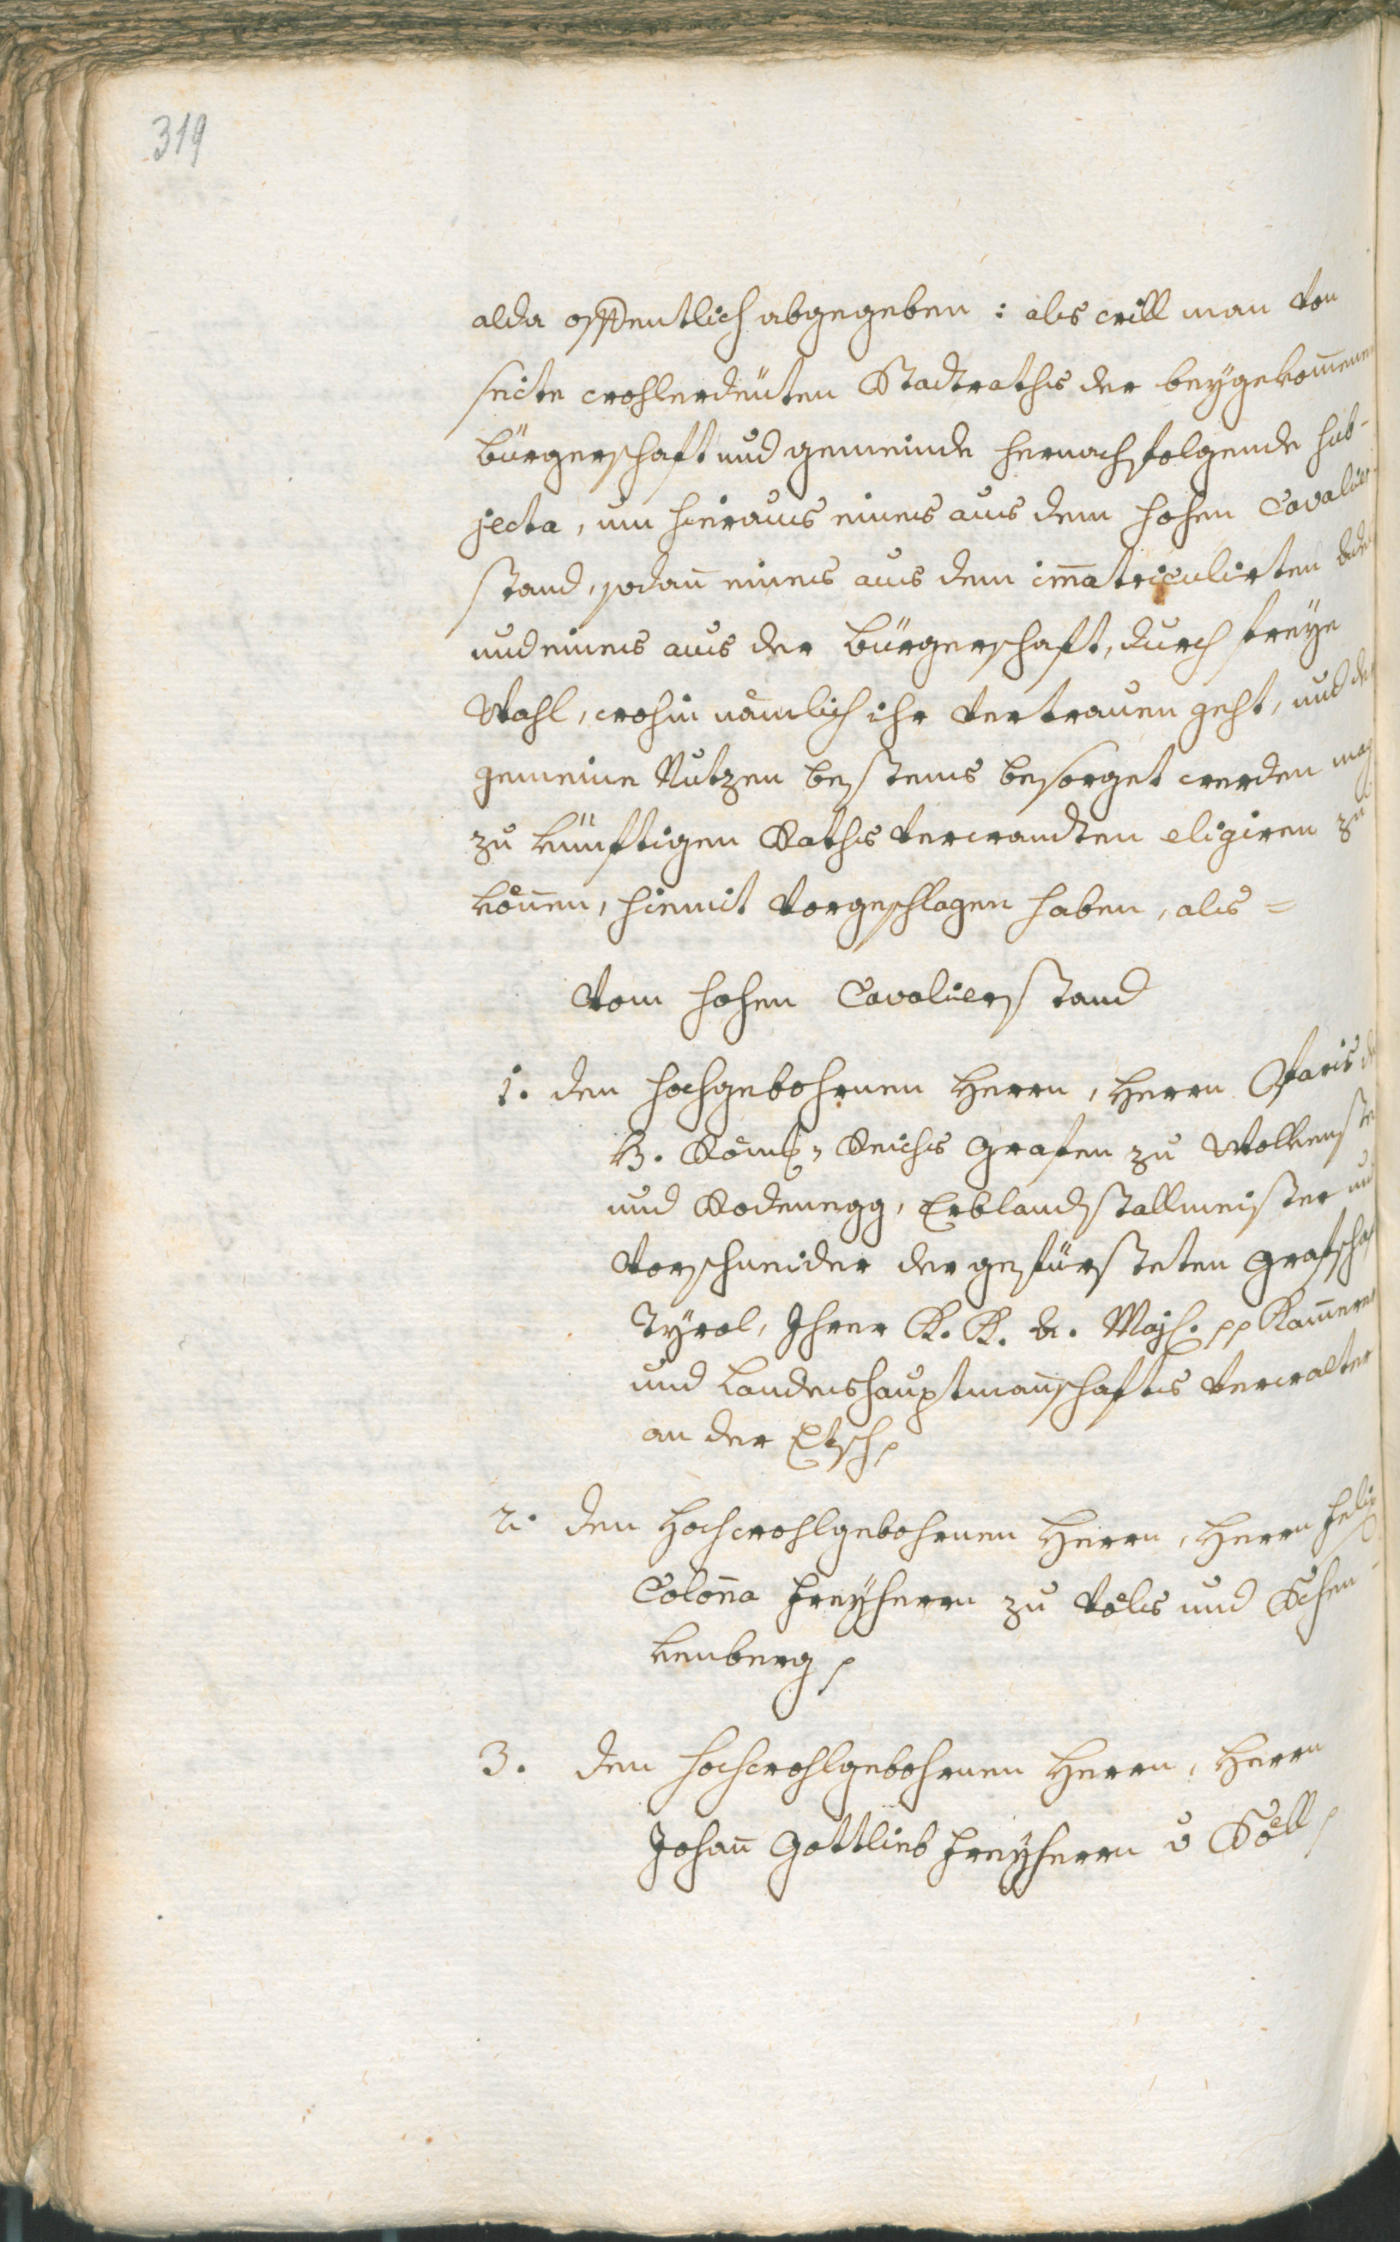 319
alda offentlich abgegeben: als will man von
seite wohlerdeüten Stadtraths der beygekom̄enen
bürgerschaft und gemeinde hernachfolgende sub-
jecta, um hieraus eines aus dem hohen Cavalier
stand, sodan̄ eines aus dem im̄atriculirten Adel
und eines aus der bürgerschaft, durch freÿe
Wahl, wohin nämlich ihr vertrauen geht, und der
gemeine Nutzen bestens besorget werden mag
zu künftigen Raths verwandten eligiren zu
kön̄en, hiemit vorgeschlagen haben, als =
Vom hohen Cavalierstand
1. den hochgebohrnen Herrn, Herrn Paris des
H. Röm: Reichs grafen zu Wolkenstein
und Rodenegg, Erblandstallmeister und
vorschneider der gefürsteten grafschaft
Tÿrol, Ihrer K. K. A. Maj. pp Kam̄erer
und Landeshauptman̄schafts verwalter
an der Etsch
2. den Hochwohlgebohrnen Herrn, Herrn Felix
Colon̄a freÿherrn zu Völs und Schen-
kenberg
3. den hochwohlgebohrnen Herrn, Herrn
Johan̄ Gottlieb freÿherrn v